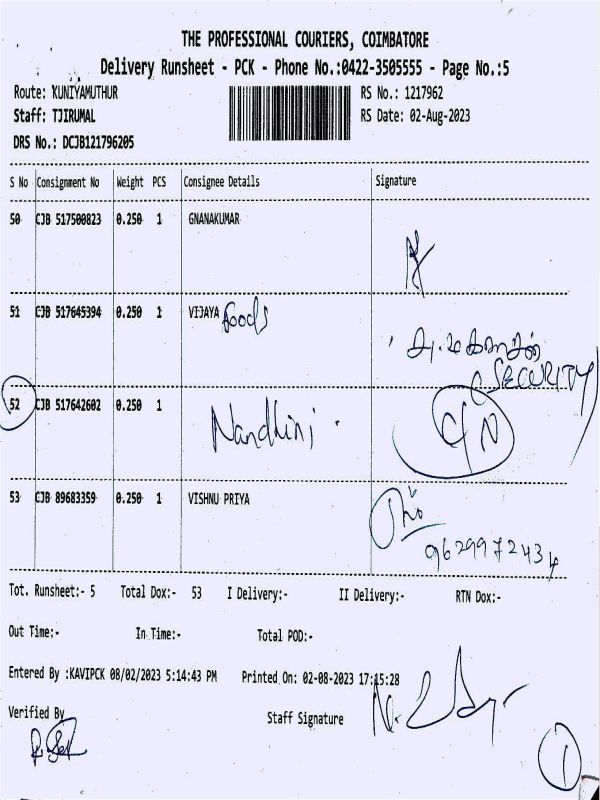 THE PROFESSIONAL COURIERS, COIMBATORE
Delivery Runsheet - PCK - Phone No.:0422-3505555 - Page No.:5
Route: KUNIYAMUTHUR RS No.: 1217962
Staff: TJIRUMAL RS Date: 02-Aug-2023
DRS No.: DCJB121796205
S No Consignment No Weight PCS Consignee Details Signature
50 CJB 517500823 0.250 1 GNANAKUMAR
51 CJB 517645394 0.250 1 VIJAYA foods
SECURITY
52 CJB 517642602 0.250 1 Nandhini C/N
53 CJB 89683359 0.250 1 VISHNU PRIYA
9629972434
Tot. Runsheet:- 5 Total Dox:- 53 I Delivery:- II Delivery:- RTN Dox:-
Out Time:- In Time:- Total POD:-
Entered By :KAVIPCK 08/02/2023 5:14:43 PM Printed On: 02-08-2023 17:15:28
Verified By Staff Signature
1